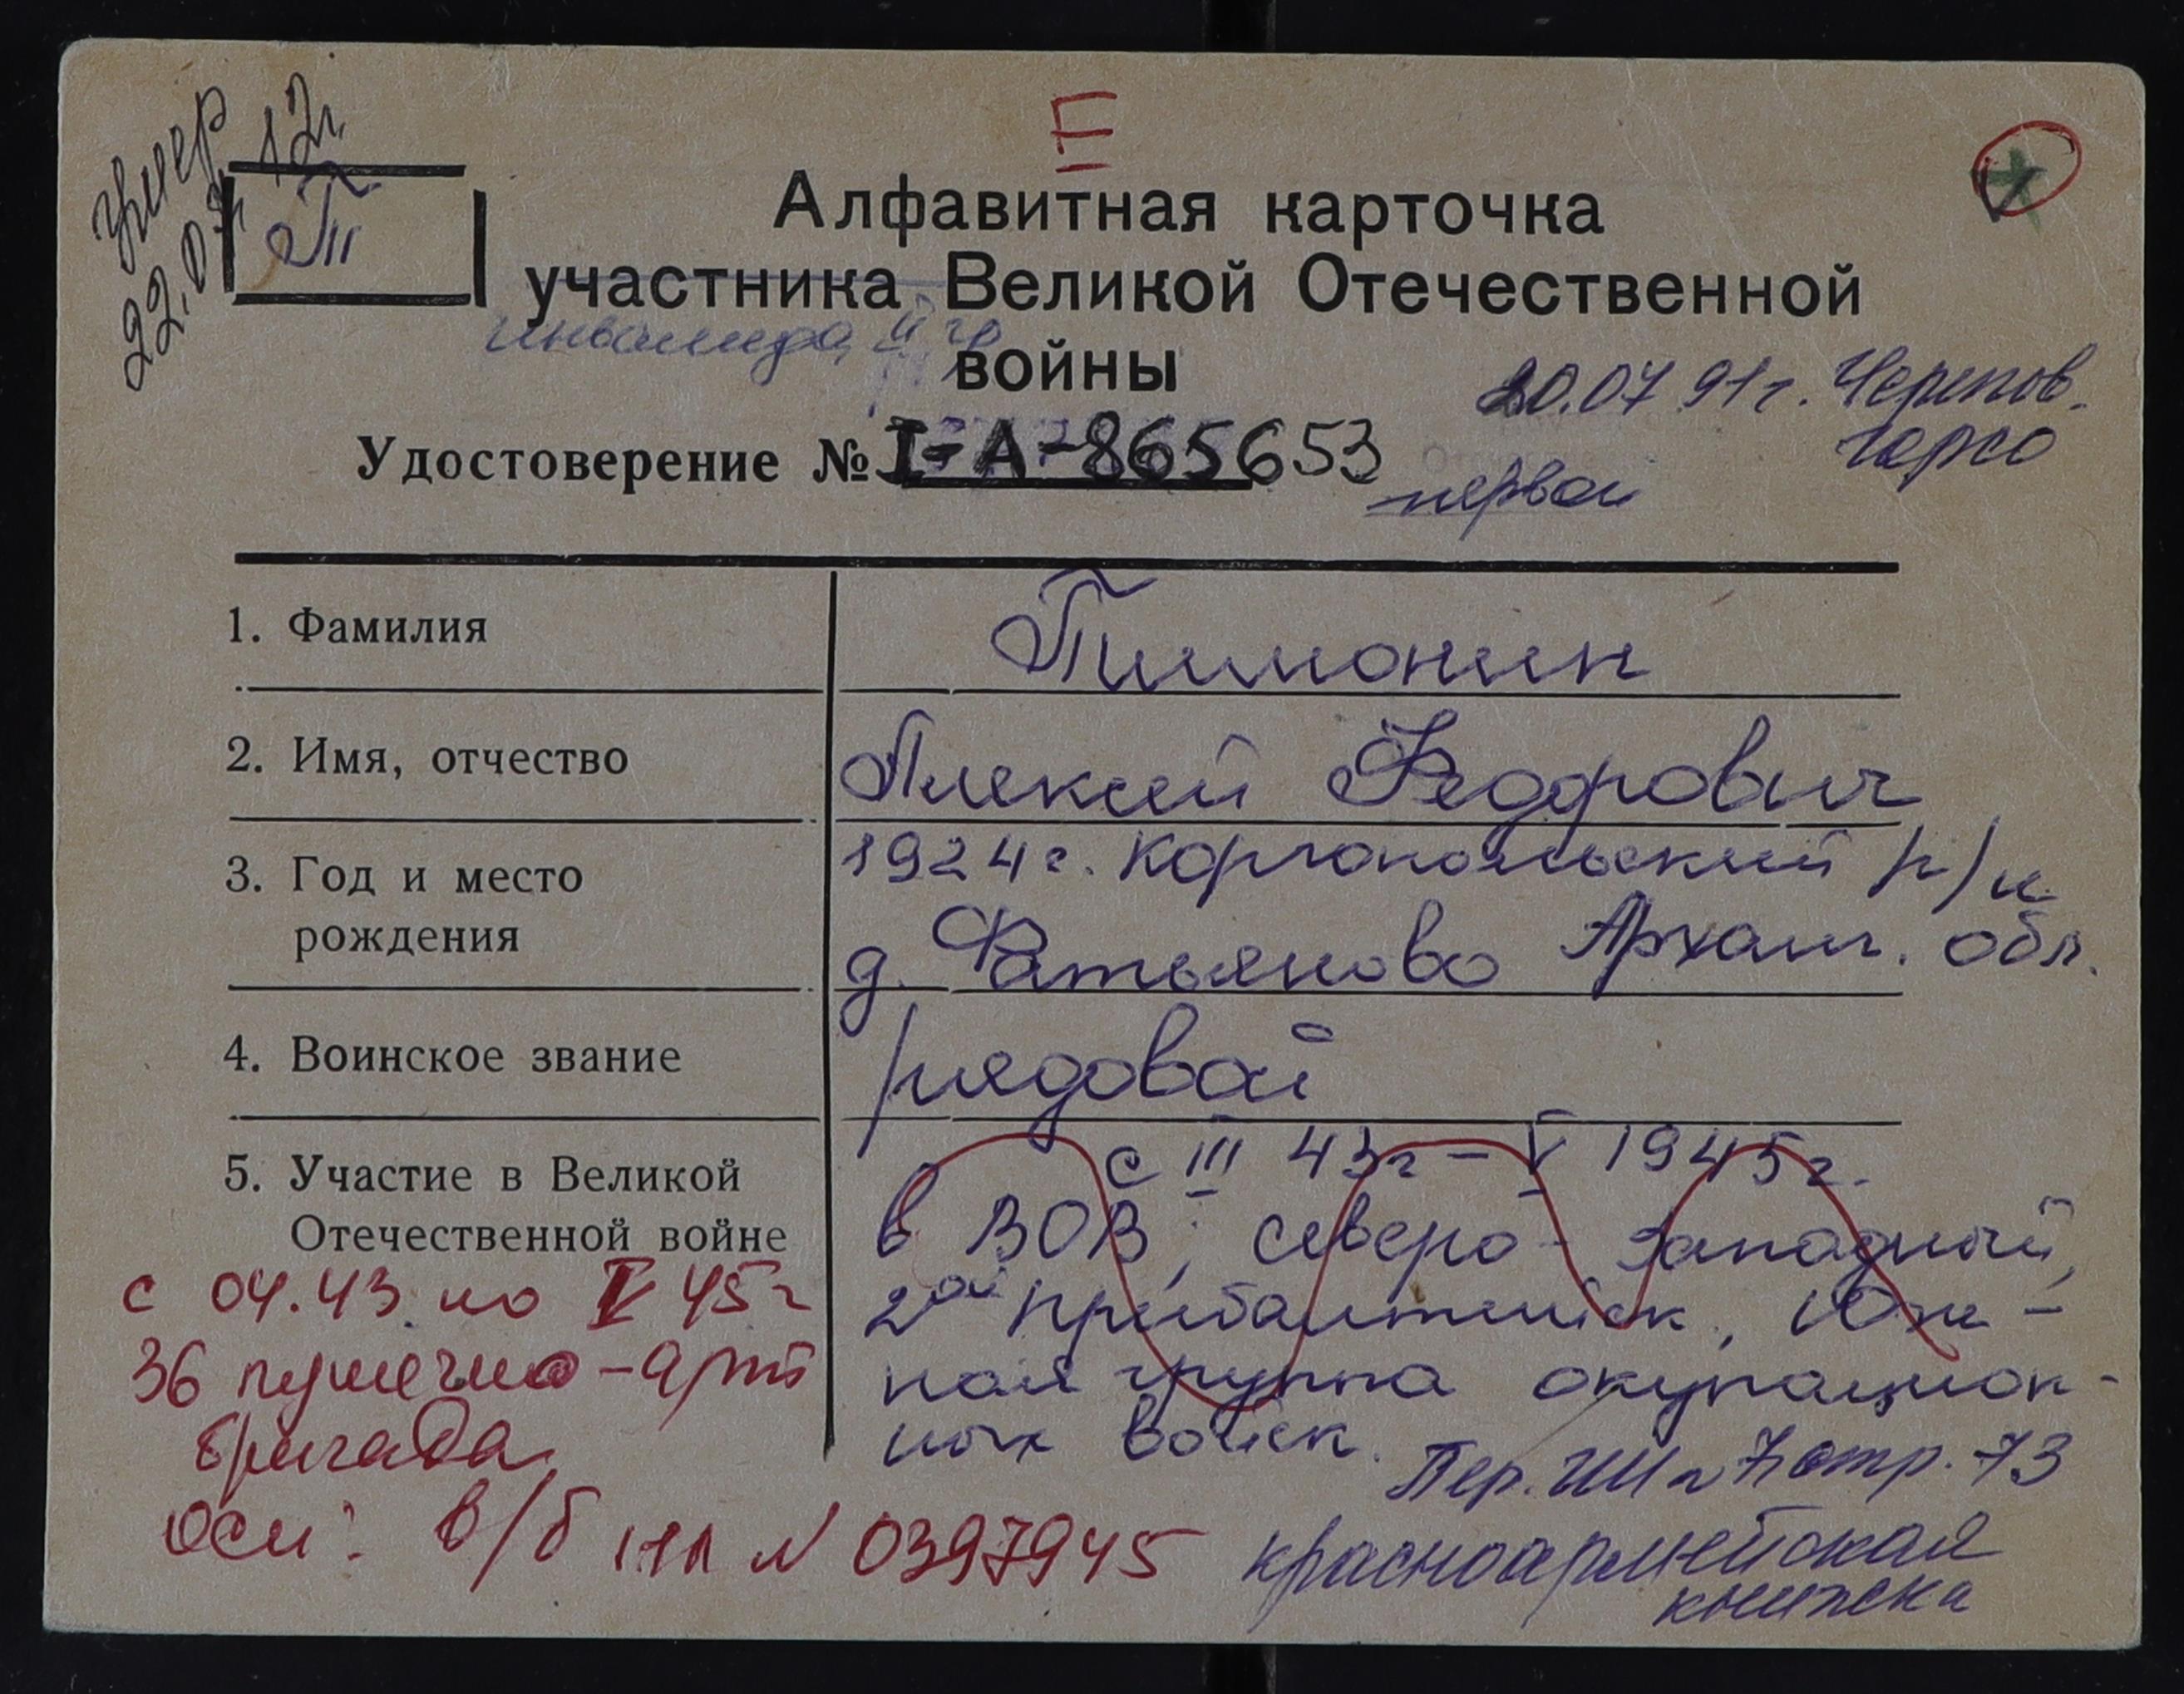 Умер 22.07.12г.
Пи
Алфавитная карточка
участника Великой Отечественной
инвалида II гр
войны
20.07.91г. Черепов.
горсо
Удостоверение № I-А-865653
первой
1. Фамилия Пимонин
2. Имя, отчество Алексей Федорович
3. Год и место 1924г. Каргопольский р/н
рождения д. Фатьяново Арханг. обл.
4. Воинское звание рядовой
с III 43г – V 1945г.
5. Участие в Великой в ВОВ, северо-западный,
Отечественной войне 2ой прибалтийск, Юж-
с 04.43 по V 45г ная группа окупацион-
36 пушечно-арт ных войск.
бригада
Пер. стр. 73
осн: в/б НЛ N 0397945 красноармейская
книжка